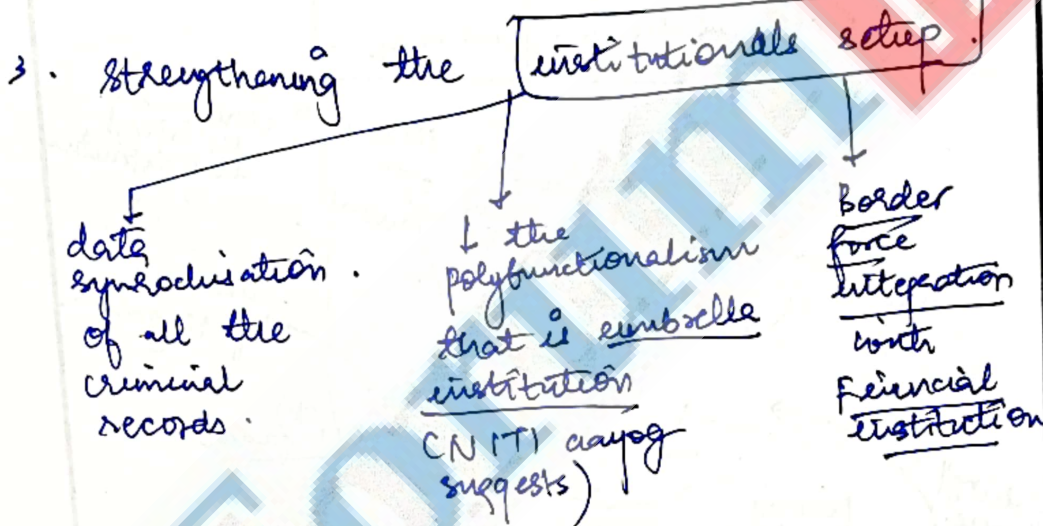 3. strengthening the institutionals setup.
data
synrochisation.
of all the
criminal
records.
↓ the
polyfunctionalism
that is eumbrella
institution
(NITI aayog
suggests)
Border
force
integration
with
Feinncial
institution
Forum